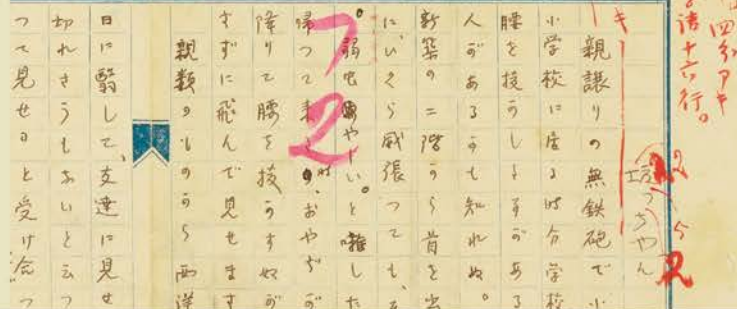 四分アキ
十六行。
坊っちやん
親譲りの無鉄砲で小
小学校に居る時分学校
腰を抜かした事がある
人があるかも知れぬ。
新築の二階から首を出
に、いくら威張つても、
弱虫やーい。と囃した
帰つて来た時、おやぢが
降りて腰を抜かす奴が
さずに飛んで見せます
親類のものから西洋
日に翳して、友達に見せ
切れさうもないと云つ
つて見せると受け合つ
72